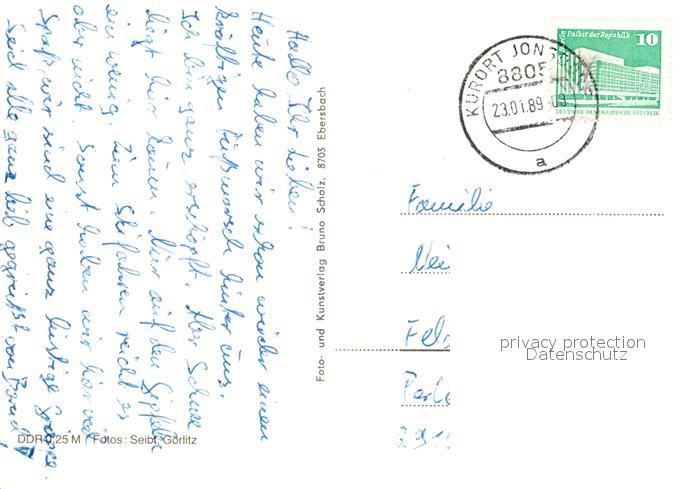 Hallo Ihr Lieben!
Heute haben wir schon wieder einen
kräftigen Fußmarsch hinter uns.
Ich bin ganz erschöpft. Aber Schnee
liegt hier kaum. Nur auf den Gipfeln
ein wenig. Zum Skifahren reicht es
aber nicht. Sonst haben wir hier viel
Spaß, wir sind eine ganz lustige Truppe.
Seid alle ganz lieb gegrüßt von
DDR 0,25 M Fotos: Seibt, Görlitz
Foto- und Kunstverlag Bruno Scholz, 8705 Ebersbach
KURORT JONS
8805
23.01.89
a
Berlin Palast der Republik 10
DEUTSCHE DEMOKRATISCHE REPUBLIK
Familie
Nei
Fel
privacy protection
Datenschutz
Perle